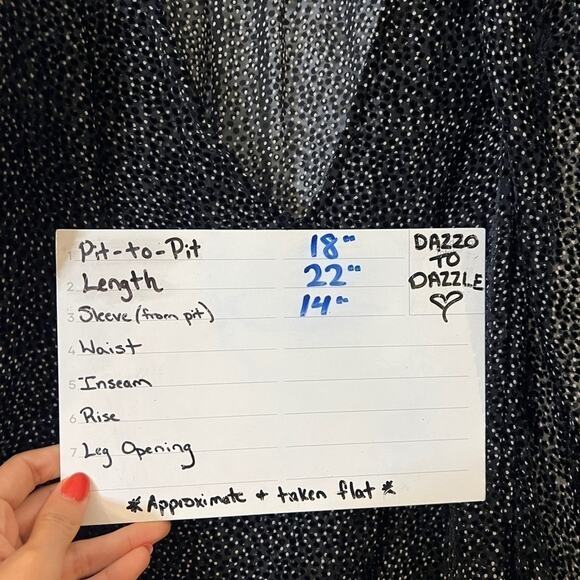 1 Pit-to-Pit 18"
2 Length 22"
3 Sleeve (from pit) 14"
4 Waist
5 Inseam
6 Rise
7 Leg Opening
*Approximate + taken flat*
DAZZO
TO
DAZZLE